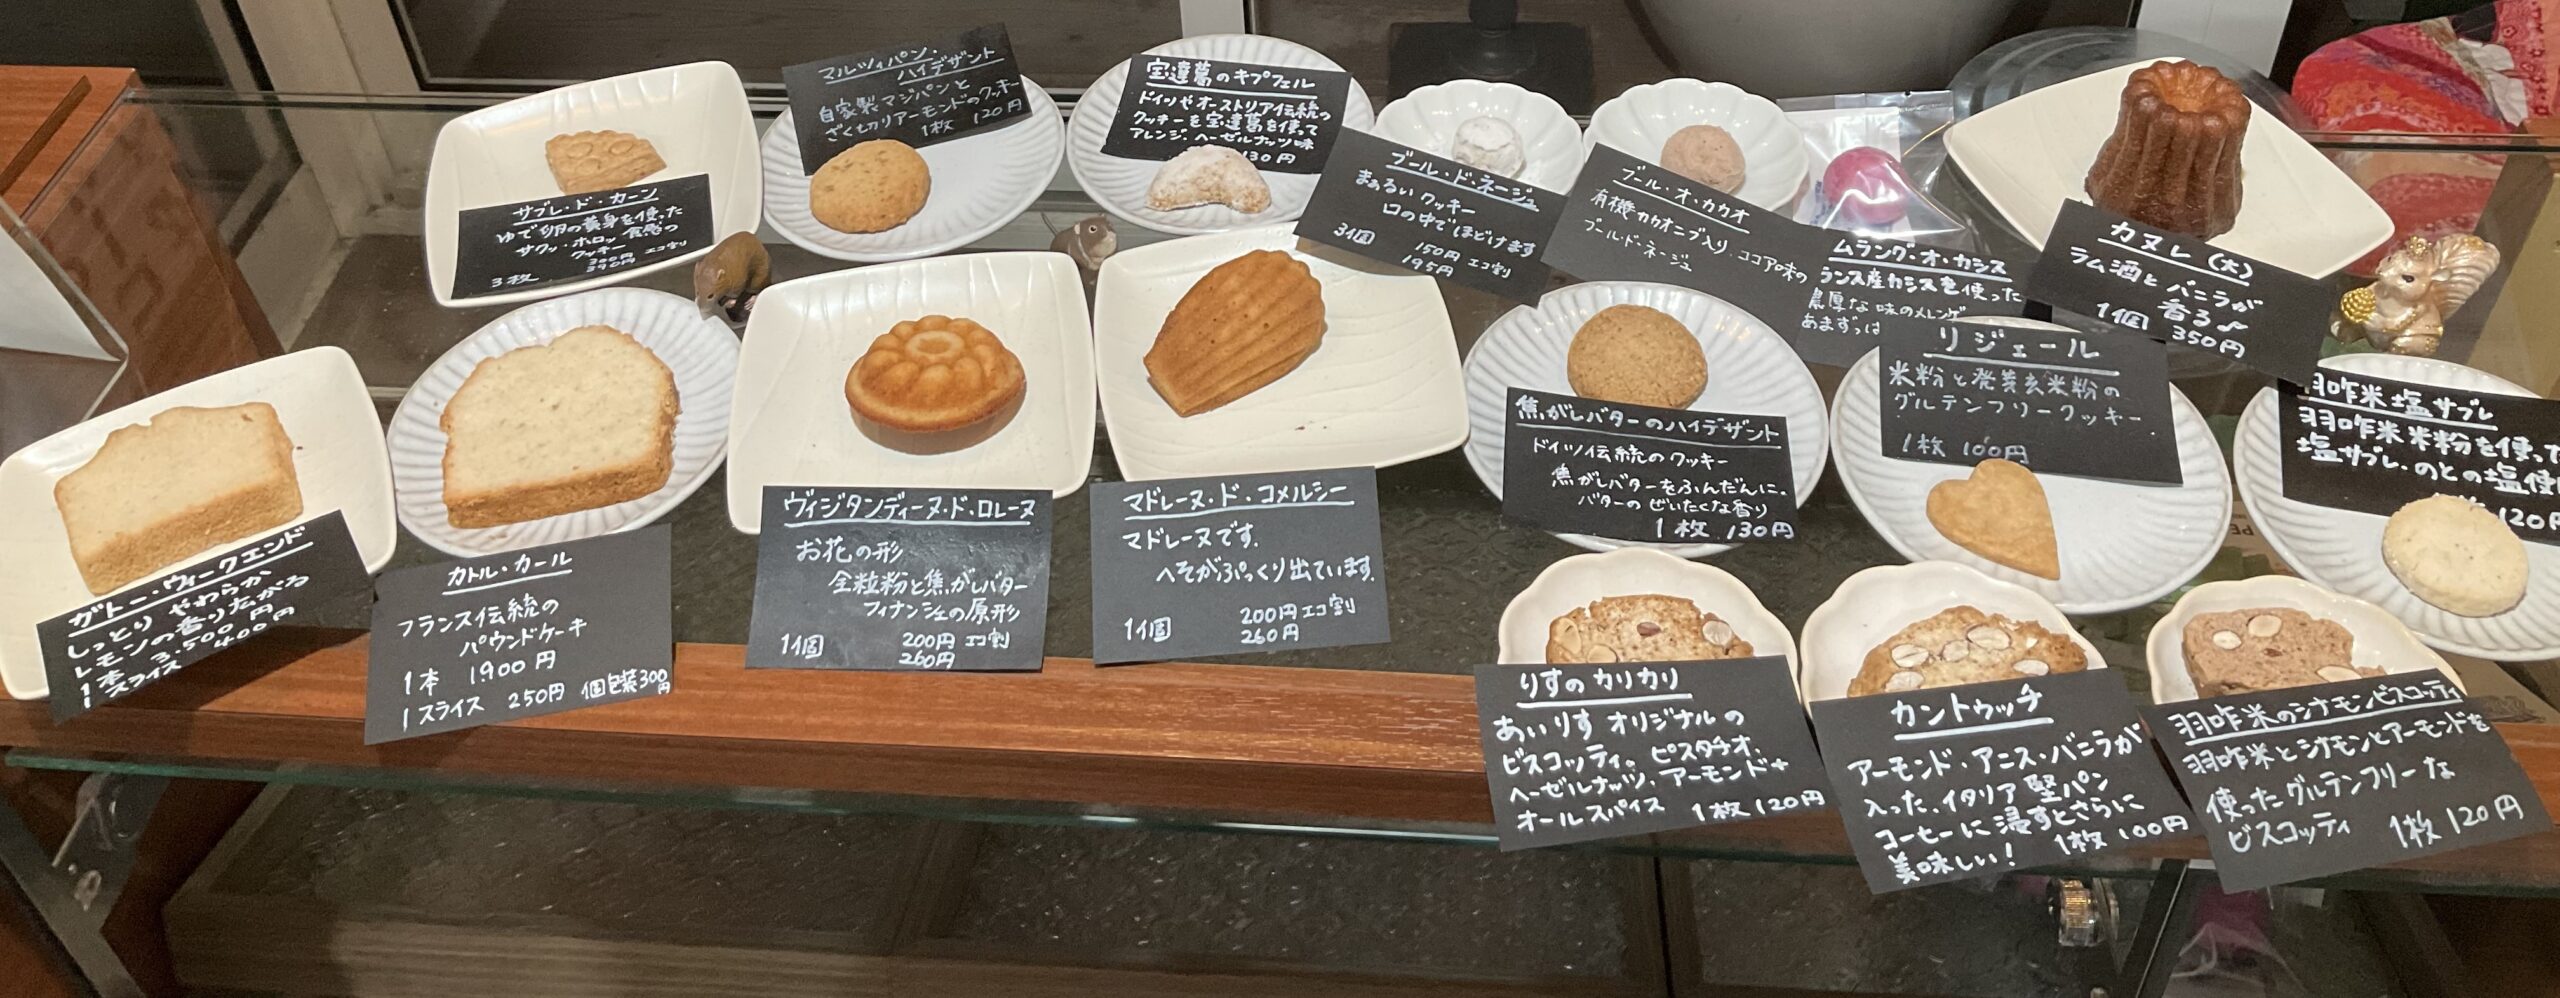 マルツィパン・
ハイデザント
自家製マジパンと
ざくも切りアーモンドのクッキー
1枚 120円
宝達葛のキプフェル
ドイツやオーストリア伝統の
クッキーを宝達葛を使って
アレンジ.ヘーゼルナッツ味
130円
サブレ・ド・カーン
ゆで卵の黄身を使った
サクッ・ホロッ食感の
クッキー
3枚 300円 エコ割
390円
ブール・ド・ネージュ
まぁるいクッキー
口の中でほどけます
3個 150円 エコ割
195円
ブール・オ・カカオ
有機カカオニブ入り、ココア味の
ブール・ド・ネージュ
ムラング・オ・カシス
ランス産カシスを使った
濃厚な味のメレンゲ
あまずっぱ
カヌレ (大)
ラム酒とバニラが
香る♪
1個 350円
リジェール
米粉と発芽玄米粉の
グルテンフリークッキー
1枚 100円
羽咋米塩サブレ
羽咋米米粉を使った
塩サブレ.のとの塩使
120円
焦がしバターのハイデザント
ドイツ伝統のクッキー
焦がしバターをふんだんに.
バターのぜいたくな香り
1枚 130円
ガトー・ウィークエンド
しっとり やわらか
レモンの香り広がる
1本 3.500円
1スライス 400円
カトル・カール
フランス伝統の
パウンドケーキ
1本 1.900円
1スライス 250円 個包装300円
ヴィジタンディーヌ・ド・ロレーヌ
お花の形
全粒粉と焦がしバター
フィナンシェの原形
1個 200円 エコ割
260円
マドレーヌ・ド・コメルシー
マドレーヌです.
へそがぷっくり出ています.
1個 200円エコ割
260円
りすのカリカリ
あいりすオリジナルの
ビスコッティ。ピスタチオ、
ヘーゼルナッツ、アーモンド+
オールスパイス 1枚120円
カントゥッチ
アーモンド・アニス・バニラが
入った、イタリア堅パン
コーヒーに浸すとさらに
美味しい! 1枚 100円
羽咋米のシナモンビスコッティ
羽咋米とシナモンとアーモンドを
使ったグルテンフリーな
ビスコッティ 1枚120円